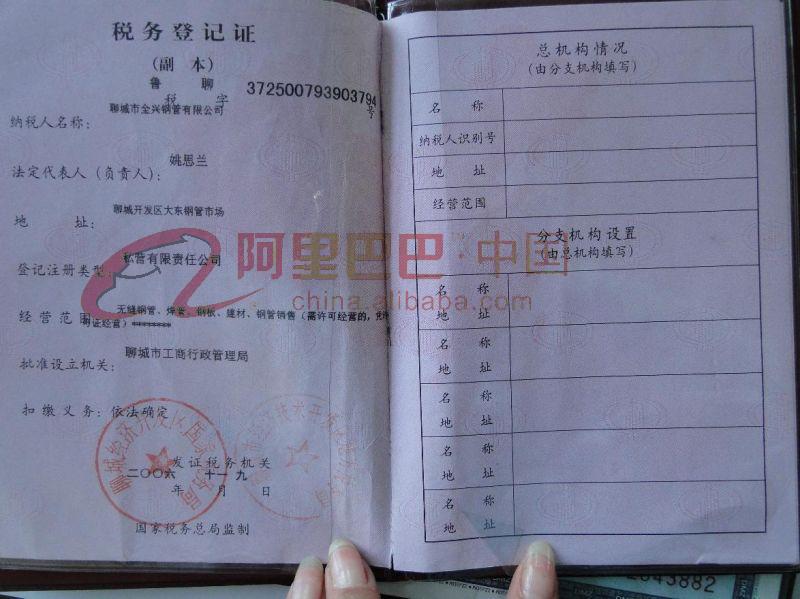 税务登记证
(副 本)
鲁 聊
税 字 372500793903794 号
纳税人名称: 聊城市全兴钢管有限公司
法定代表人(负责人): 姚思兰
地 址: 聊城开发区大东钢管市场
登记注册类型: 私营有限责任公司
经营范围: 无缝钢管、焊管、钢板、建材、钢管销售(需许可经营的,凭许
可证经营)********
批准设立机关: 聊城市工商行政管理局
扣缴义务: 依法确定
发证税务机关
二〇〇六年 十一月 九日
国家税务总局监制
总机构情况
(由分支机构填写)
名 称
纳税人识别号
地 址
经营范围
分支机构设置
(由总机构填写)
名 称
地 址
名 称
地 址
名 称
地 址
名 称
地 址
名 称
地 址
阿里巴巴·中国
china.alibaba.com